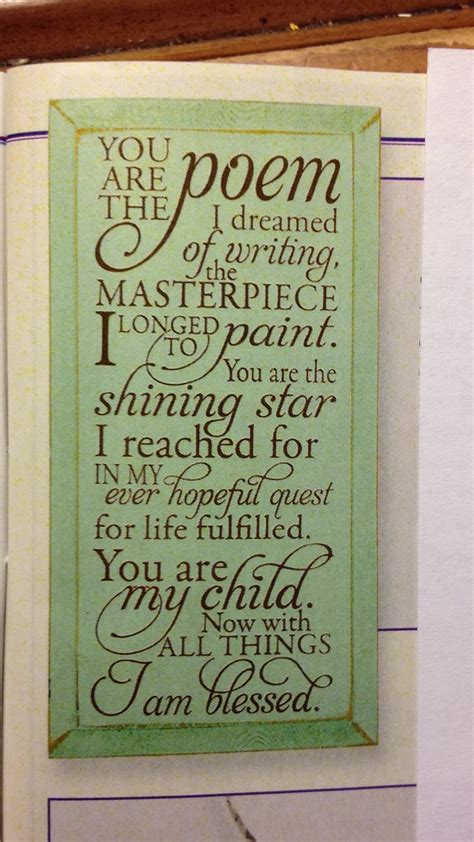 YOU
ARE
THE poem
I dreamed
of writing,
the
MASTERPIECE
I LONGED
TO paint.
You are the
shining star
I reached for
IN MY
ever hopeful quest
for life fulfilled.
You are
my child.
Now with
ALL THINGS
I am blessed.